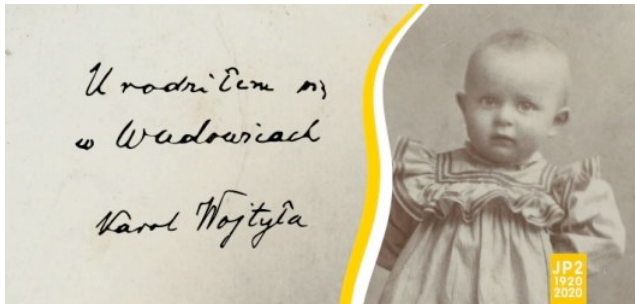 Urodziłem się
w Wadowicach
Karol Wojtyła
JP2
1920
2020